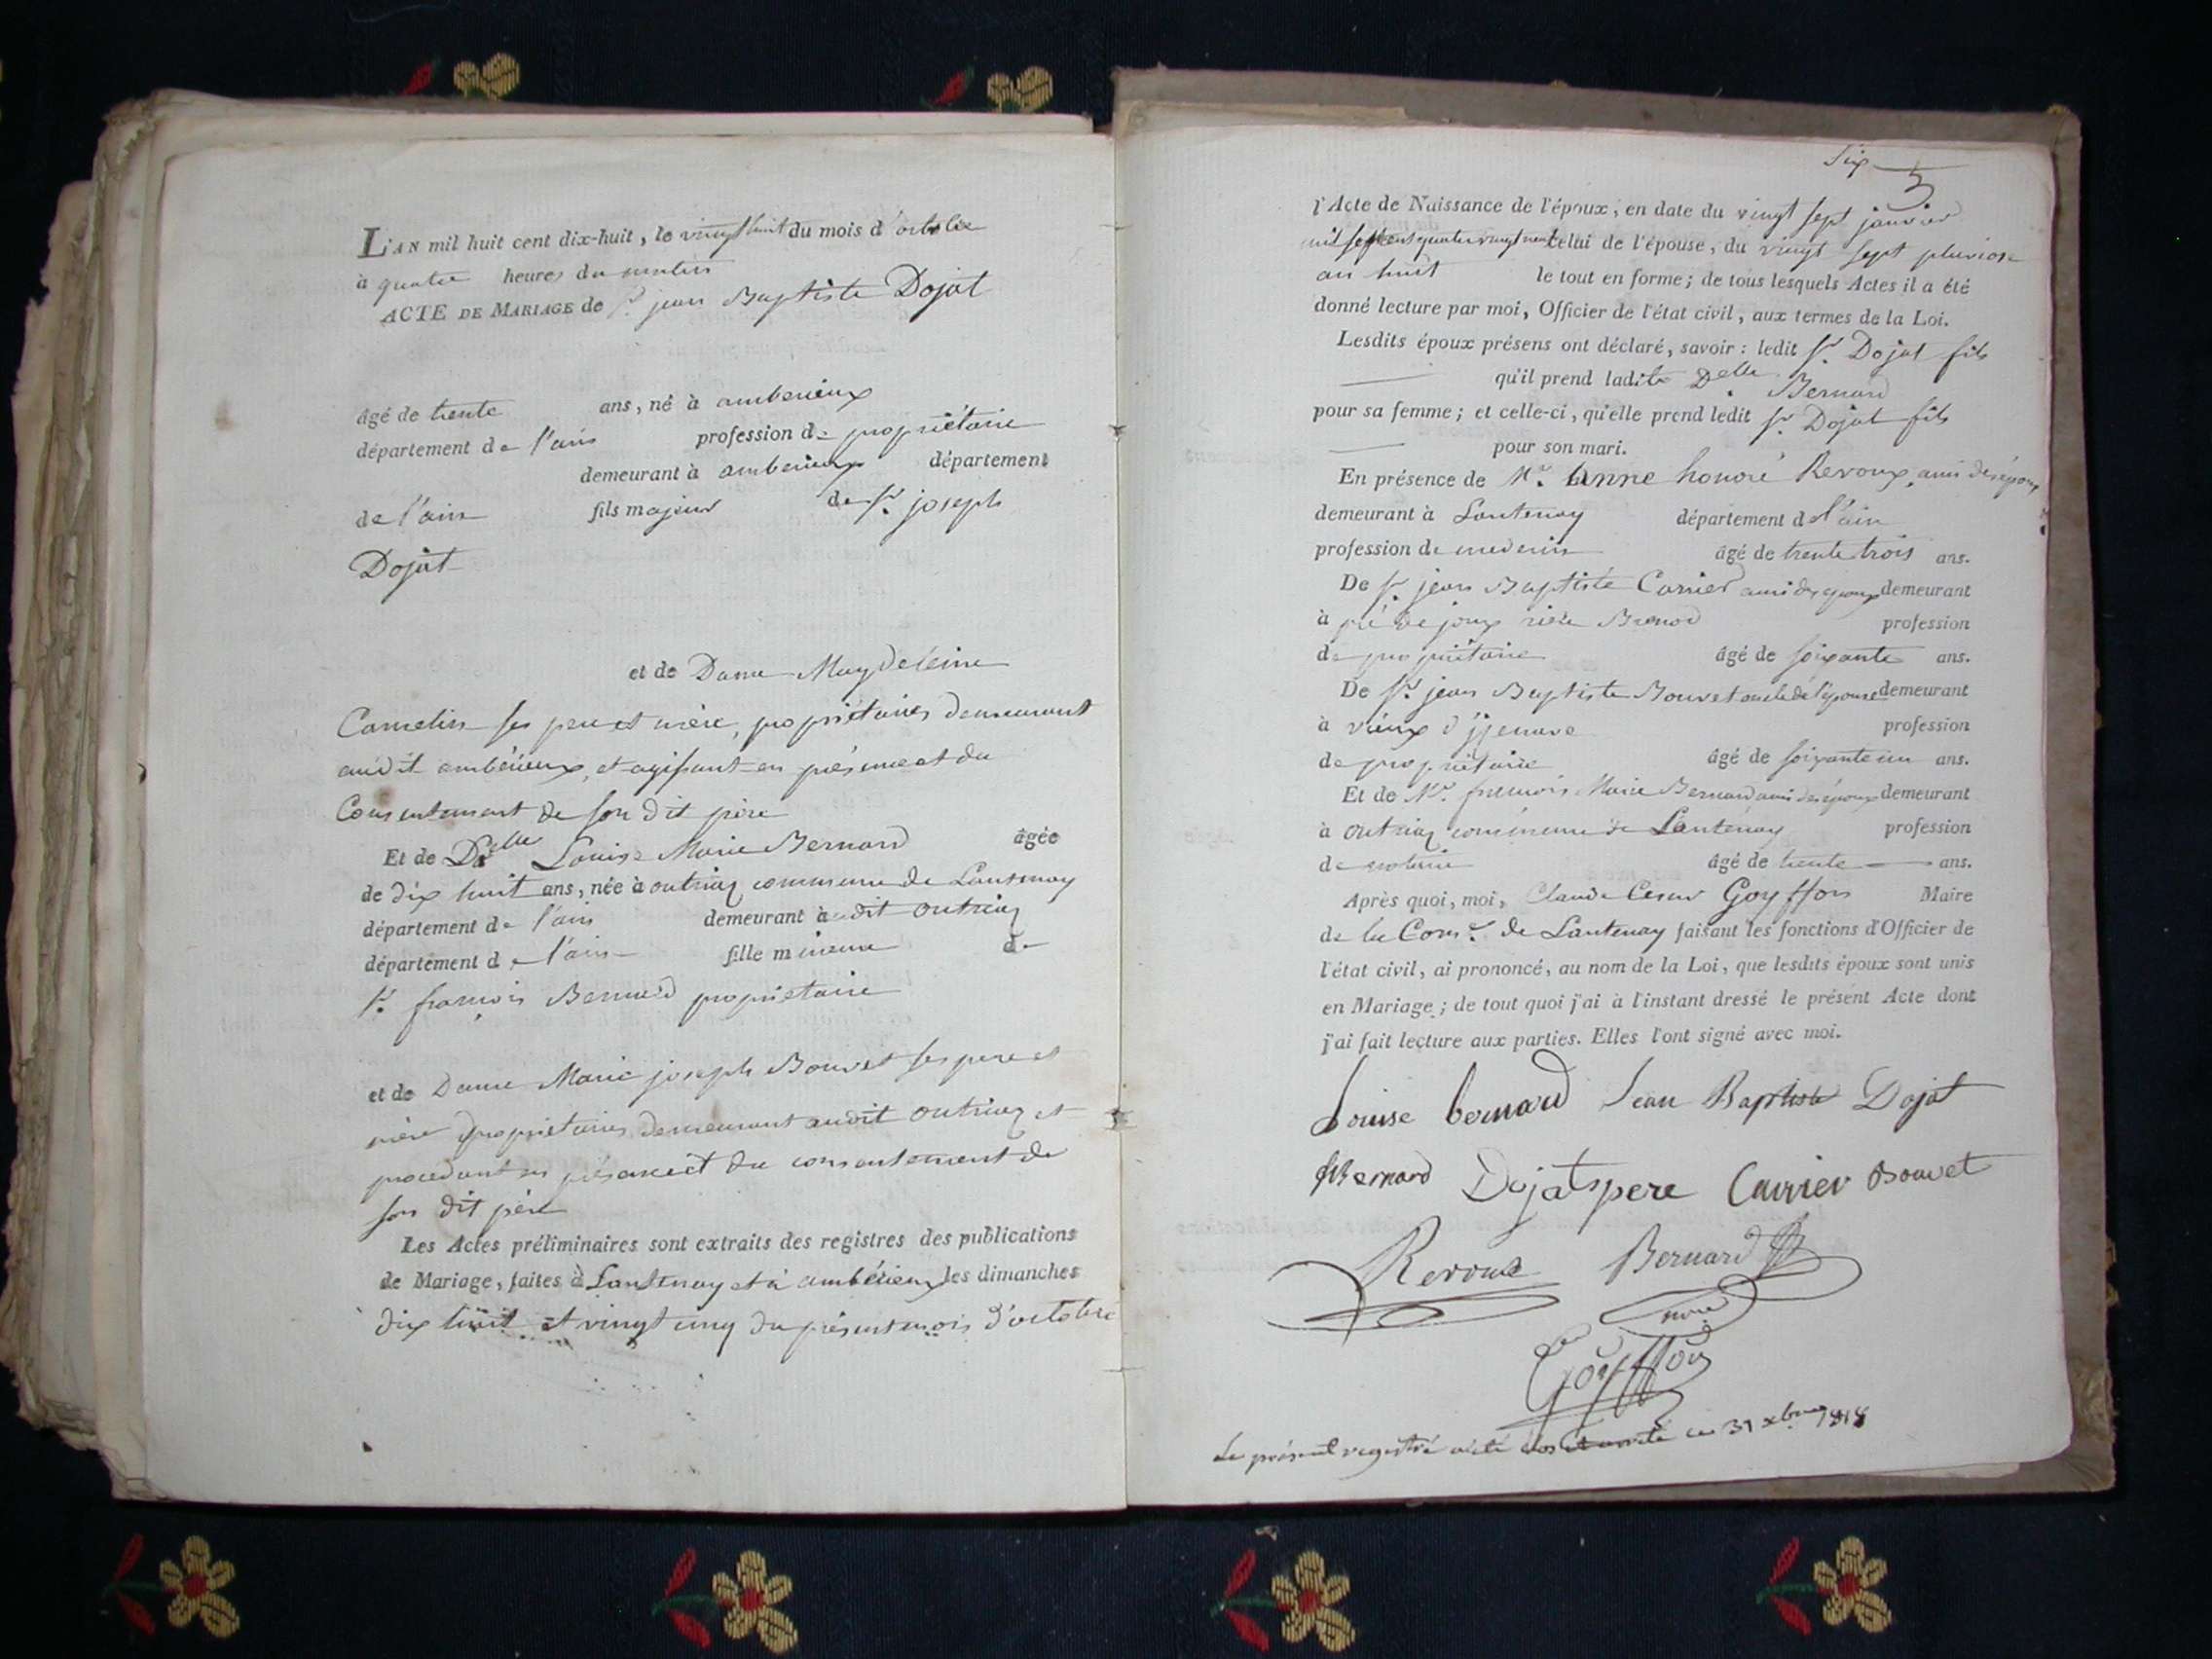 L'AN mil huit cent dix-huit, le vingt huit du mois d'octobre
à quatre heures du matin
ACTE DE MARIAGE de Sr. jean Baptiste Dojat
âgé de trente ans, né à amberieux
département de l'ain profession de propriétaire
demeurant à amberieux département
de l'ain fils majeur de Sr. joseph
Dojat
et de Dame Magdeleine
Camelin ses pere et mère, propriétaires demeurant
audit amberieux, et agissant en présence et du
Consentement de son dit père
Et de Delle Louise Marie Bernard âgée
de dix huit ans, née à outriaz commune de Lantenay
département de l'ain demeurant audit outriaz
département de l'ain fille mineure de
Sr. françois Bernard propriétaire
et de Dame Marie joseph Bouvet ses pere et
mère propriétaires demeurant audit outriaz et
procedant en présence et du consentement de
son dit père
Les Actes préliminaires sont extraits des registres des publications
de Mariage, faites à Lantenay et à ambérieux les dimanches
dix huit et vingt cinq du présent mois d'octobre
Six
l'Acte de Naissance de l'époux, en date du vingt sept janvier
mil sept cent quatre vingt neuf celui de l'épouse, du vingt sept pluviose
an huit le tout en forme; de tous lesquels Actes il a été
donné lecture par moi, Officier de l'état civil, aux termes de la Loi.
Lesdits époux présens ont déclaré, savoir: ledit Sr. Dojat fils
qu'il prend ladite Delle. Bernard
pour sa femme; et celle-ci, qu'elle prend ledit Sr. Dojat fils
pour son mari.
En présence de Mr. anne honoré Revoux, ami des époux
demeurant à Lantenay département de l'ain
profession de medecin âgé de trente trois ans.
De Sr. jean Baptiste Carrier ami des epoux demeurant
à pré de joux rière Brenod profession
de propriétaire âgé de soixante ans.
De Sr. jean Baptiste Bouvet oncle de l'épouse demeurant
à vieux d'izenave profession
de propriétaire âgé de soixante un ans.
Et de Mr. françois Marie Bernard ami des époux demeurant
à outriaz commune de Lantenay profession
de notaire âgé de trente ans.
Après quoi, moi, Claude Cesar Goyffon Maire
de la Com.e de Lantenay faisant les fonctions d'Officier de
l'état civil, ai prononcé, au nom de la Loi, que lesdits époux sont unis
en Mariage; de tout quoi j'ai à l'instant dressé le présent Acte dont
j'ai fait lecture aux parties. Elles l'ont signé avec moi.
Louise bernard Jean Baptiste Dojat
fBernard Dojat pere Carrier Bouvet
Revoux Bernard
nre
Goyffon
Le présent registre a été clos et arrêté ce 31 xbre 1818